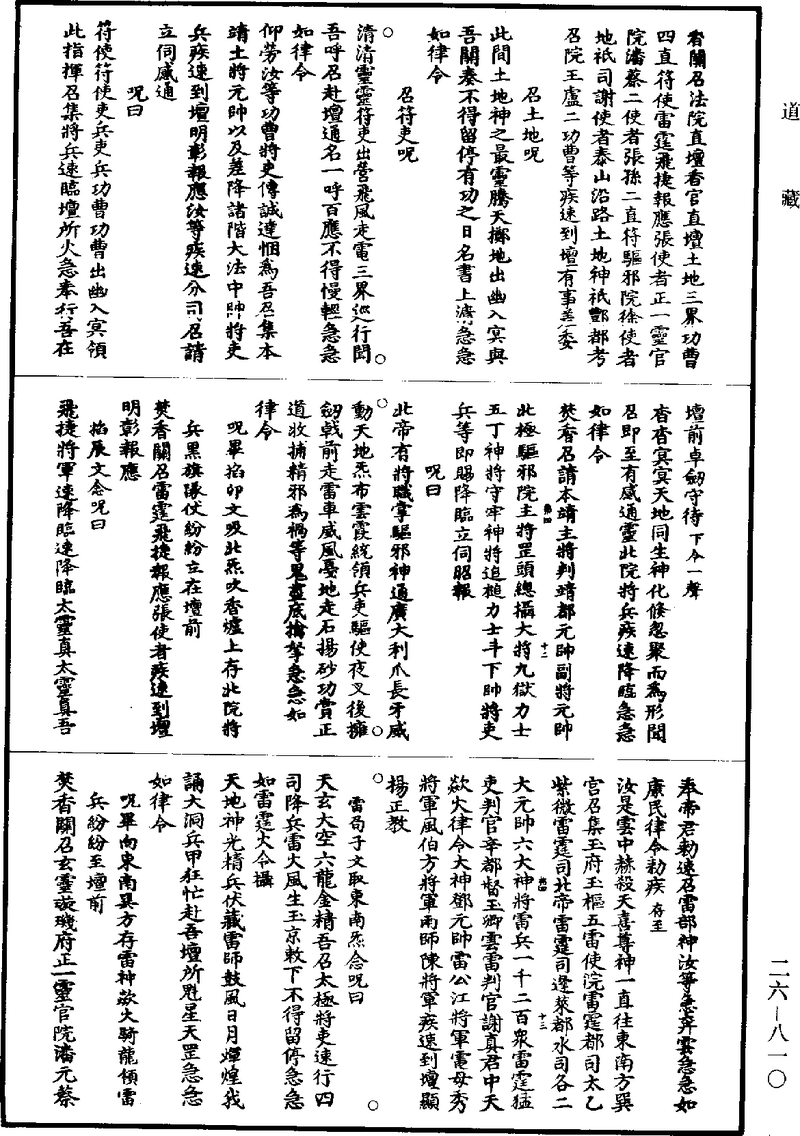 道藏
香關召法院直壇香官直壇土地三界功曹
四直符使雷霆飛捷報應張使者正一靈官
院潘蔡二使者張孫二直符驅邪院徐使者
地祇司謝使者泰山沿路土地神祇酆都考
召院王盧二功曹等疾速到壇有事羙委
召土地呪
此間土地神之最靈騰天擲地出幽入冥與
吾關奏不得留停有功之日名書上清急急
如律令
召符吏呪
清清靈靈符吏出營飛風走電三界巡行聞
吾呼召赴壇通名一呼百應不得慢輕急急
如律令
仰勞汝等功曹將吏傳誠達悃為吾召集本
靖土將元帥以及差降諸階大法中帥將吏
兵疾速到壇明彰報應汝等疾速分司召請
立伺感通
呪曰
符使符使吏兵吏兵功曹功曹出幽入冥領
此指揮召集將兵速臨壇所火急奉行吾在
壇前卓劒守待下令一聲
杳杳冥冥天地同生神化倏忽聚而為形聞
召即至有感通靈北院將兵疾速降臨急急
如律令
焚香召請本靖主將判靖都元帥副將元帥
北極驅邪院主將罡頭總攝大將九獄力士
五丁神將守牢神將追槌力士斗下帥將吏
兵等即賜降臨立伺昭報
呪曰
北帝有將職掌驅邪神通廣大利爪長牙威
動天地炁布雲霞統領兵吏驅使夜叉後擁
劒戟前走雷車威風憂地走石揚砂功賞正
道收捕精邪為禍等鬼盡底擒拏急急如
律令
呪畢掐卯文吸北炁吹香爐上存北院將
兵黑旗隊仗紛紛立在壇前
焚香關召雷霆飛捷報應張使者疾速到壇
明彰報應
掐辰文念呪曰
飛捷將軍速降臨速降臨太靈真太靈真吾
奉帝君勅速召雷部神汝等急奔雲急急如
康民律令勅疾存至
汝是雲中赫殺天喜尊神一直往東南方巽
宮召集玉府玉樞五雷使院雷霆都司太乙
紫微雷霆司北帝雷霆司蓬萊都水司各二
大元帥六大神將雷兵一千二百眾雷霆猛
吏判官辛都督玉卿雲雷判官謝真君中天
欻火律令大神鄧元帥雷公江將軍電母秀
將軍風伯方將軍雨師陳將軍疾速到壇顯
揚正教
雷局子文取東南炁念呪曰
天玄大空六龍金精吾召太極將吏速行四
司降兵雷火風生玉京敕下不得留停急急
如雷霆火令攝
天地神光精兵伏藏雷師鼓風日月煇煌我
誦大洞兵甲狂忙赴吾壇所魁星天罡急急
如律令
呪畢向東南巽方存雷神欻火騎龍領雷
兵紛紛至壇前
焚香關召玄靈璇璣府正一靈官院潘元蔡
二六—八一〇